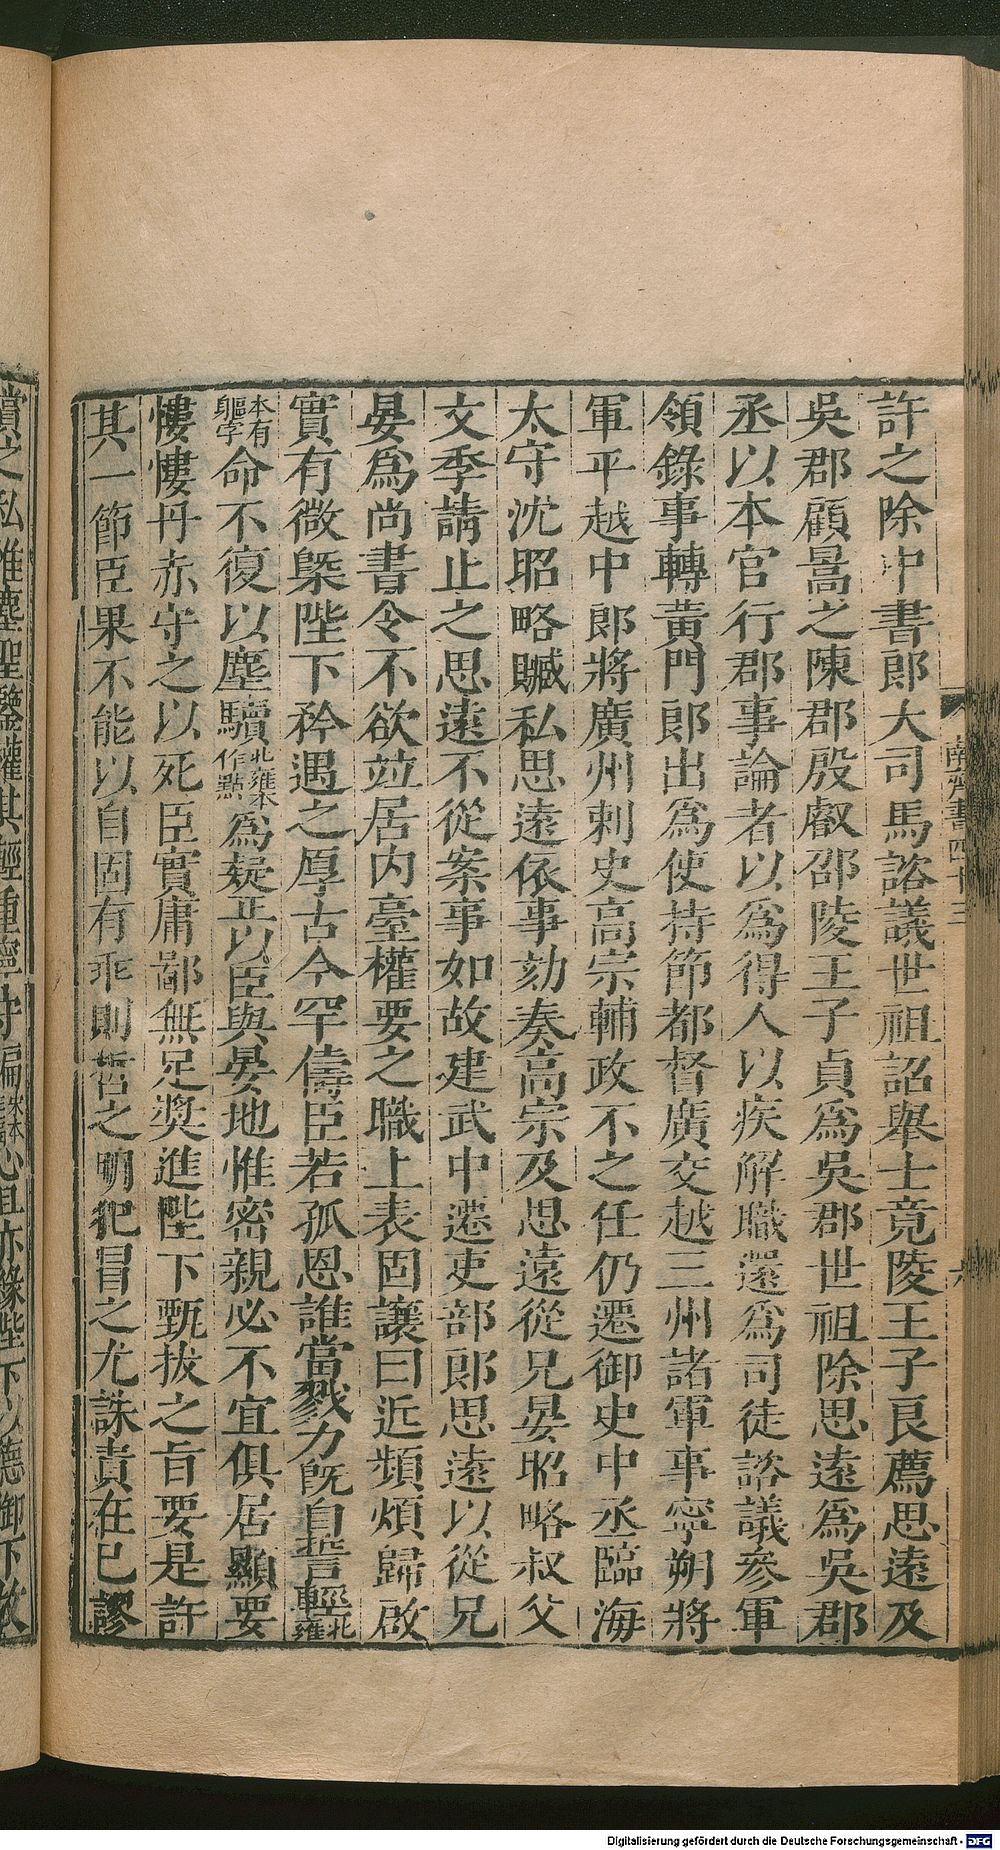 許之除中書郎大司馬諮議世祖詔舉士竟陵王子良薦思遠及
吳郡顧暠之陳郡殷叡邵陵王子貞爲吳郡世祖除思遠爲吳郡
丞以本官行郡事論者以爲得人以疾解職還爲司徒諮議參軍
領錄事轉黃門郎出爲使持節都督廣交越三州諸軍事寧朔將
軍平越中郎將廣州刺史高宗輔政不之任仍遷御史中丞臨海
太守沈昭略贓私思遠依事劾奏高宗及思遠從兄晏昭略叔父
文季請止之思遠不從案事如故建武中遷吏部郎思遠以從兄
晏爲尚書令不欲並居内臺權要之職上表固讓曰近頻煩歸啟
實有微槩陛下矜遇之厚古今罕儔臣若孤恩誰當戮力既自誓輕北雍
本有軀字命不復以塵驖北雍本作點爲疑正以臣與晏地惟密親必不宜俱居顯要
慺慺丹赤守之以死臣實庸鄙無足奬進陛下甄拔之旨要是許
其一節臣果不能以自固有乖則哲之明犯冒之尤誅責在已謬
賞之私惟塵聖鑒權其輕重寧守褊心且亦緣陛下以德御下故
南齊書四十三
六
Digitalisierung gefördert durch die Deutsche Forschungsgemeinschaft - DFG